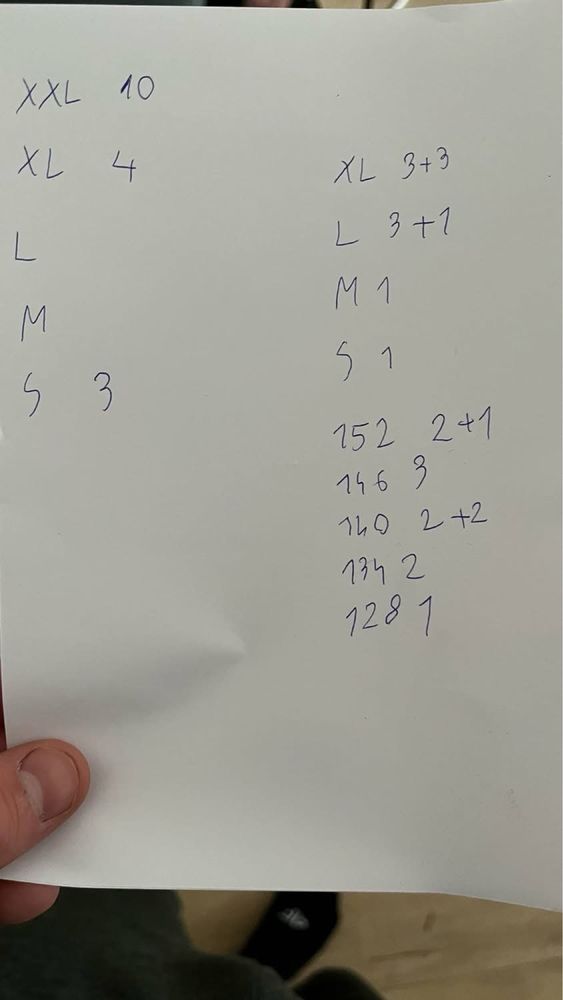 XXL 10
XL 4
L
M
S 3
XL 3+3
L 3+1
M 1
S 1
152 2+1
146 3
140 2+2
134 2
128 1